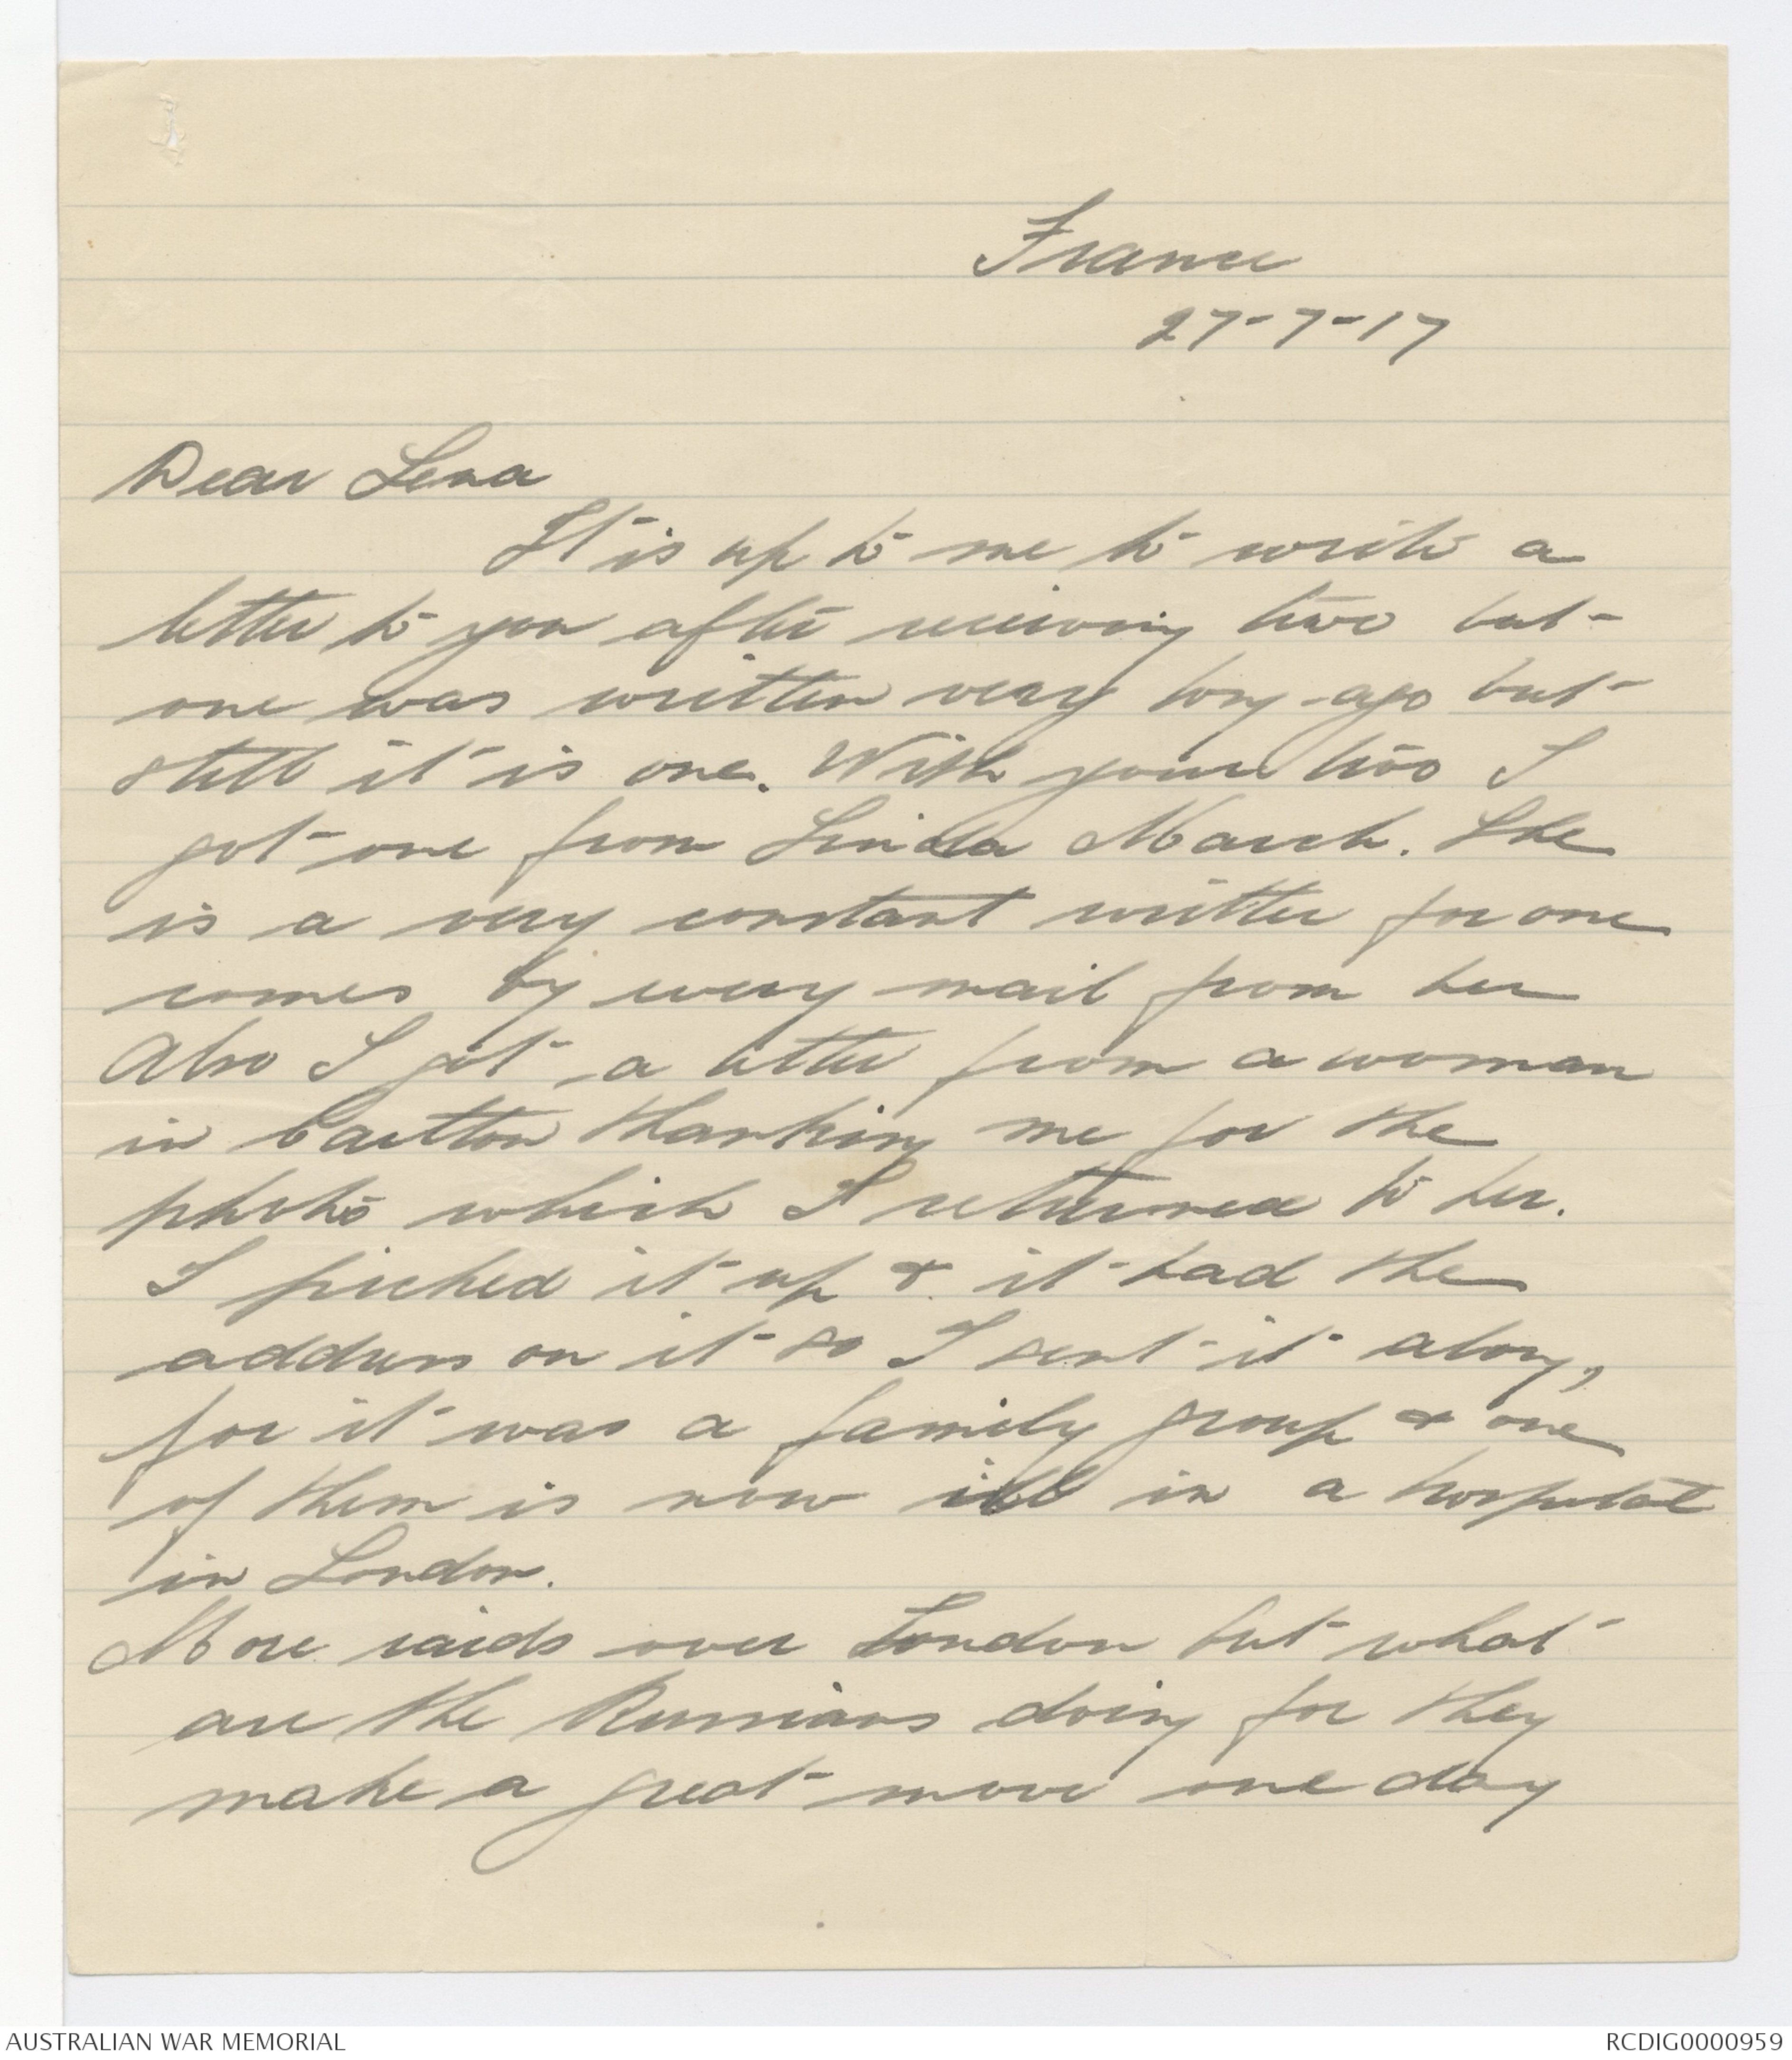 France
27-7-17
Dear Lena
It is up to me to write a
letter to you after receiving two but
one was written very long ago but
still it is one. With your two I
got one from Linda March. She
is a very constant writter for one
comes by every mail from her
Also I got a letter from a woman
in Carlton thanking me for the
photo which I returned to her.
I picked it up & it had the
address on it so I sent it along,
for it was a family group & one
of them is now ill in a hospital
in London.
More raids over London but what
are the Russians doing for they
make a great move one day
AUSTRALIAN WAR MEMORIAL
RCDIG0000959